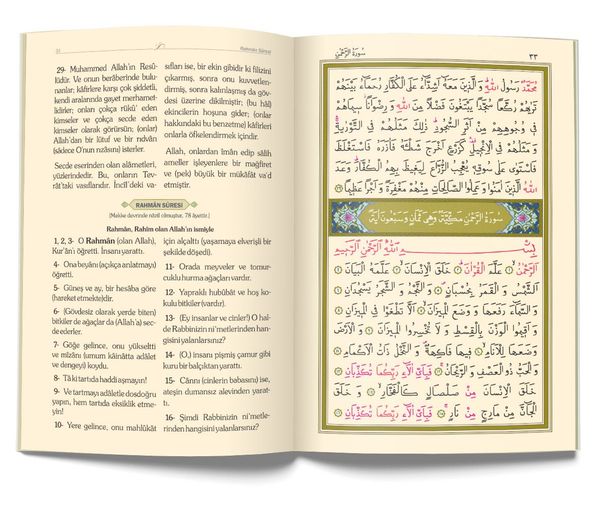 Rahmân Sûresi
29- Muhammed Allah'ın Resû-
lüdür. Ve onun berâberinde bulu-
nanlar, kâfirlere karşı çok şiddetli,
kendi aralarında gayet merhamet-
lidirler; onları çokça rükû' eden
kimseler ve çokça secde eden
kimseler olarak görürsün; (onlar)
Allah'dan bir lütuf ve bir rıdvân
(sâdece O'nun rızâsını) isterler.
Secde eserinden olan alâmetleri,
yüzlerindedir. Bu, onların Tev-
rât'taki vasıflarıdır. İncîl'deki va-
sıfları ise, bir ekin gibidir ki filizini
çıkarmış, sonra onu kuvvetlen-
dirmiş, sonra kalınlaşmış da göv-
desi üzerine dikilmiştir; (bu hâl)
ekincilerin hoşuna gider; (onlar
hakkındaki bu benzetme) kâfirleri
onlarla öfkelendirmek içindir.
Allah, onlardan îmân edip sâlih
ameller işleyenlere bir mağfiret
ve (pek) büyük bir mükâfât va'd
etmiştir.
RAHMÂN SÛRESİ
(Mekke devrinde nâzil olmuştur, 78 âyettir.)
Rahmân, Rahîm olan Allah'ın ismiyle
1, 2, 3- O Rahmân (olan Allah),
Kur'ân'ı öğretti. İnsanı yarattı.
4- Ona beyânı (açıkça anlatmayı)
öğretti.
5- Güneş ve ay, bir hesâba göre
(hareket etmekte)dir.
6- (Gövdesiz olarak yerde biten)
bitkiler de ağaçlar da (Allah'a) sec-
de ederler.
7- Göğe gelince, onu yükseltti
ve mîzânı (umum kâinâtta adâlet
ve dengeyi) koydu.
8- Tâ ki tartıda haddi aşmayın!
9- Ve tartmayı adâletle dosdoğru
yapın, hem tartıda eksiklik etme-
yin!
10- Yere gelince, onu mahlûkât
için alçalttı (yaşamaya elverişli bir
şekilde döşedi).
11- Orada meyveler ve tomur-
cuklu hurma ağaçları vardır.
12- Yapraklı hubûbât ve hoş ko-
kulu bitkiler (vardır).
13- (Ey insanlar ve cinler!) O hal-
de Rabbinizin ni'metlerinden han-
gisini yalanlarsınız?
14- (O,) insanı pişmiş çamur gibi
kuru bir balçıktan yarattı.
15- Cânnı (cinlerin babasını) ise,
ateşin dumansız alevinden yarat-
tı.
16- Şimdi Rabbinizin ni'metle-
rinden hangisini yalanlarsınız?
سُورَةُ الرَّحْمٰنِ
٣٣
مُحَمَّدٌ رَسُولُ اللّٰهِ وَالَّذٖينَ مَعَهُٓ اَشِدَّٓاءُ عَلَى الْكُفَّارِ رُحَمَٓاءُ بَيْنَهُمْ
تَرٰيهُمْ رُكَّعًا سُجَّدًا يَبْتَغُونَ فَضْلًا مِنَ اللّٰهِ وَرِضْوَانًا سٖيمَاهُمْ
فٖي وُجُوهِهِمْ مِنْ اَثَرِ السُّجُودِ ذٰلِكَ مَثَلُهُمْ فِي التَّوْرٰيةِ
وَمَثَلُهُمْ فِي الْاِنْجٖيلِ كَزَرْعٍ اَخْرَجَ شَطْـَٔهُ فَاٰزَرَهُ فَاسْتَغْلَظَ
فَاسْتَوٰى عَلٰى سُوقِهٖ يُعْجِبُ الزُّرَّاعَ لِيَغٖيظَ بِهِمُ الْكُفَّارَ وَعَدَ
اللّٰهُ الَّذٖينَ اٰمَنُوا وَعَمِلُوا الصَّالِحَاتِ مِنْهُمْ مَغْفِرَةً وَاَجْرًا عَظٖيمًا
سُورَةُ الرَّحْمٰنِ مَكِّيَّةٌ وَهِيَ ثَمَانٍ وَسَبْعُونَ اٰيَةً
بِسْمِ اللّٰهِ الرَّحْمٰنِ الرَّحٖيمِ
اَلرَّحْمٰنُ ۝ عَلَّمَ الْقُرْاٰنَ ۝ خَلَقَ الْاِنْسَانَ ۝ عَلَّمَهُ الْبَيَانَ ۝
اَلشَّمْسُ وَ الْقَمَرُ بِحُسْبَانٍ ۝ وَ النَّجْمُ وَ الشَّجَرُ يَسْجُدَانِ ۝
وَ السَّمَٓاءَ رَفَعَهَا وَ وَضَعَ الْمٖيزَانَ ۝ اَلَّا تَطْغَوْا فِي الْمٖيزَانِ ۝
وَ اَقٖيمُوا الْوَزْنَ بِالْقِسْطِ وَ لَا تُخْسِرُوا الْمٖيزَانَ ۝ وَ الْاَرْضَ
وَضَعَهَا لِلْاَنَامِ ۝ فٖيهَا فَاكِهَةٌ وَ النَّخْلُ ذَاتُ الْاَكْمَامِ ۝
وَ الْحَبُّ ذُو الْعَصْفِ وَ الرَّيْحَانُ ۝ فَبِاَيِّ اٰلَٓاءِ رَبِّكُمَا تُكَذِّبَانِ ۝
خَلَقَ الْاِنْسَانَ مِنْ صَلْصَالٍ كَالْفَخَّارِ ۝ وَ خَلَقَ
الْجَٓانَّ مِنْ مَارِجٍ مِنْ نَارٍ ۝ فَبِاَيِّ اٰلَٓاءِ رَبِّكُمَا تُكَذِّبَانِ ۝